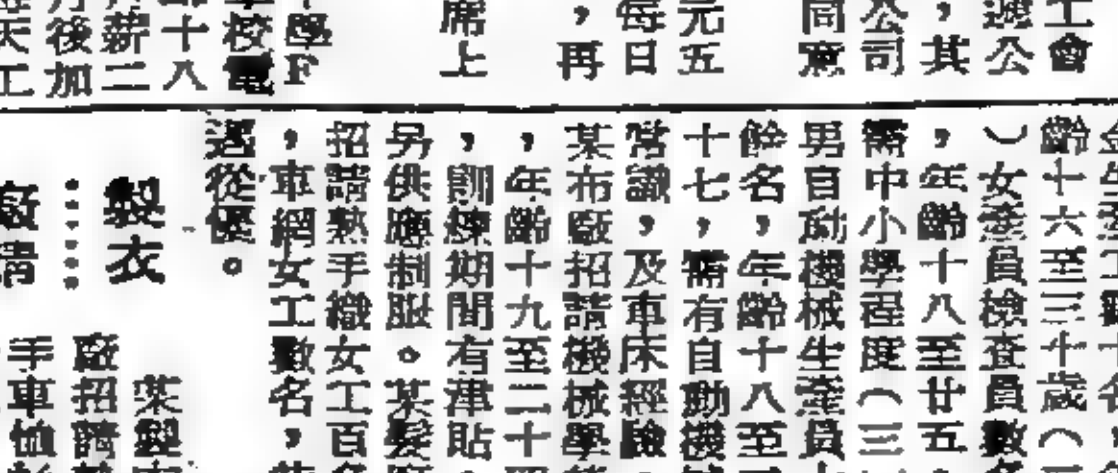 工會
遞公
，其
公司
同意
元五
每日
，再
席上
學F
校電
十八
薪二
後加
天工
齡十六至三十歲（
）女產員檢查員數
，年齡十八至廿五
需中小學程度（三
男自動機械生產員
餘名，年齡十八至
十七，需有自動機
常識，及車床經驗
某布廠招請機械學
，年齡十九至二十
，訓練期間有津貼
另供應制服。某髮
招請熟手織女工百
，車網女工數名，
遇從優。
製衣
某製
廠招請
手車恤